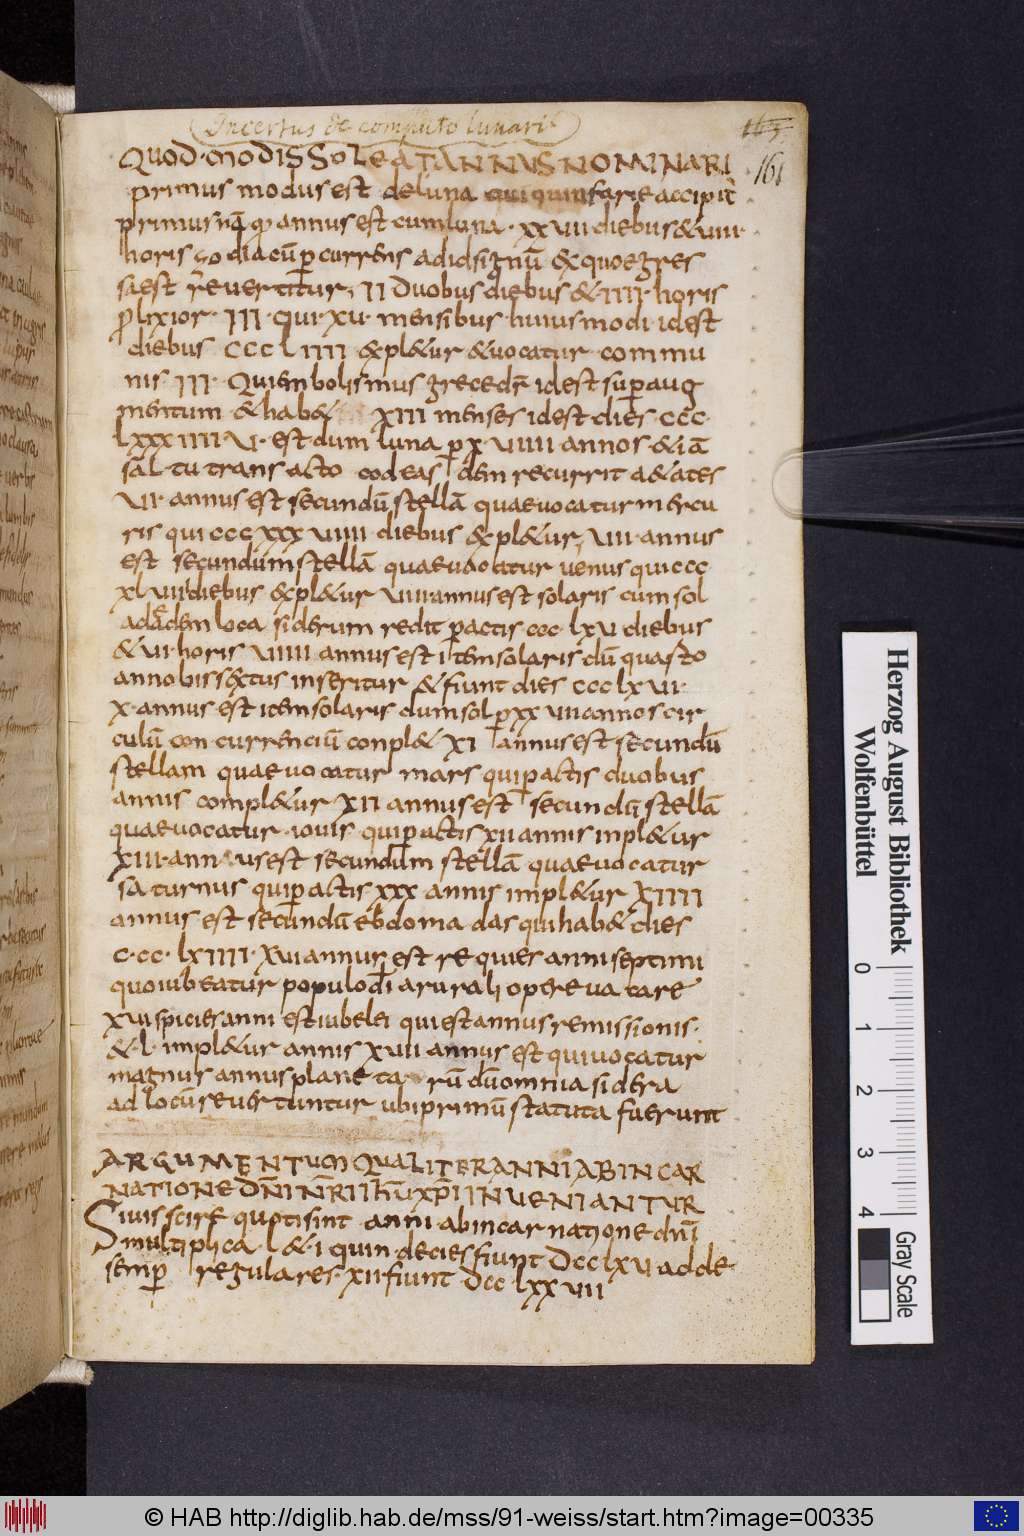 Incertus de computo lunari
165
161
QUOD MODIS SOLEAT ANNUS NOMINARI
primus modus est de luna qui quinfarie accipit̄
primus nā qđ annus est cum luna · XXVIII diebus & VIII ·
horis zodiacū ꝑcurrens ad id signū ex quo egres
sa est reuertitur, II Duobus diebus & · IIII · horis
ꝓlixior · III · qui · XII · mensibus huius modi id est
diebus CCCLIIII expl&ur & uocatur commu
nis · III · Qui embolismus grece dr̄ id est suꝑaug
mentum & hab& XIII menses id est dies CCC
LXXXIIII V · est dum luna ꝑ X · VIIII annos & iā
sāl · tu trans acto eodeas dem recurrit ad &ates
VI · annus est secundū stellā quae uocatur mercu
ris qui CCCXXXVIIII diebus expl&ur, VII · annus
est secundum stellā quae uocatur uenus qui CCC
XLVIII diebus expl&ur VIII annus est solaris cum sol
ad eadem loca siderum redit ꝑactis CCC LXV diebus
& VI horis VIIII annus est item solaris dū quarto
anno bissextus inseritur & fiunt dies CCCLXVI ·
X · annus est item solaris dum sol ꝑ XXVIII annos cir
culū con currenciū conpl& XI annus est secundū
stellam quae uocatur mars qui ꝑactis duobus
annis compl&ur XII annus est secundū stellā
quae uocatur · iouis qui ꝑactis XII annis inpl&ur
XIII · annus est secundum stellā quae uocatur
saturnus qui ꝑactis XXX annis impl&ur XIIII
annus est secundū ebdomadas qui hab& dies
C·CC· LXIIII · XV annus est requies anni septimi
quo iubeatur populo dī a rurali opere uacare
XVI species anni est iubelei qui est annus remissionis ·
& · L · impl&ur annis XVII annus est qui uocatur
magnus annus planetarū dū omnia sidera
ad locū reuertuntur ubi primū statuta fuerunt
ARGUMENTUM QUALITER ANNI AB INCAR
NATIONE DN̄I NR̄I IHŪ XP̄I INUENIANTUR
Si uis scire quot sint anni ab incarnatione dn̄i
multiplica · L & · I quindecies fiunt DCCLXV adde
semꝑ regulares · XII fiunt DCCLXXVII
Herzog August Bibliothek
Wolfenbüttel
0 1 2 3 4
Gray Scale
© HAB http://diglib.hab.de/mss/91-weiss/start.htm?image=00335